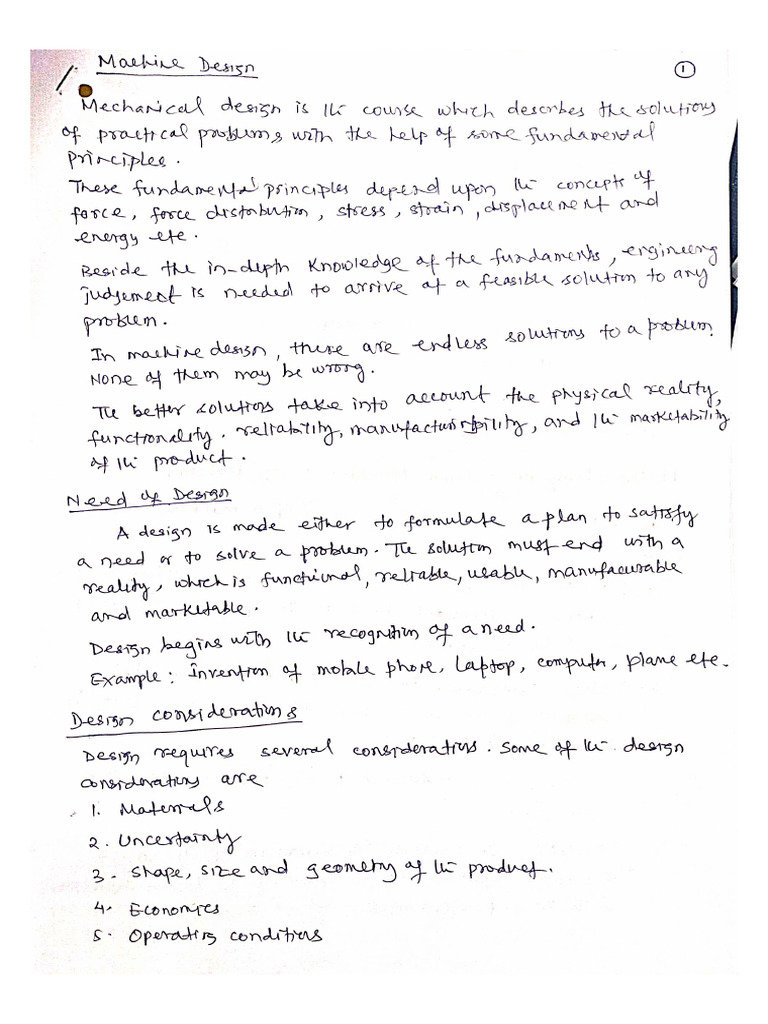 Machine Design
1
Mechanical design is the course which describes the solutions
of practical problems with the help of some fundamental
principles.
These fundamental principles depend upon the concepts of
force, force distribution, stress, strain, displacement and
energy etc.
Beside the in-depth knowledge of the fundamentals, engineering
judgement is needed to arrive at a feasible solution to any
problem.
In machine design, there are endless solutions to a problem.
None of them may be wrong.
The better solutions take into account the physical reality,
functionality, reliability, manufacturability, and the marketability
of the product.
Need of Design
A design is made either to formulate a plan to satisfy
a need or to solve a problem. The solution must end with a
reality, which is functional, reliable, usable, manufacurable
and marketable.
Design begins with the recognition of a need.
Example: Invention of mobile phone, laptop, computer, plane etc.
Design considerations
Design requires several considerations. Some of the design
considerations are
1. Materials
2. Uncertainty
3. Shape, size and geometry of the product.
4. Economics
5. Operating conditions